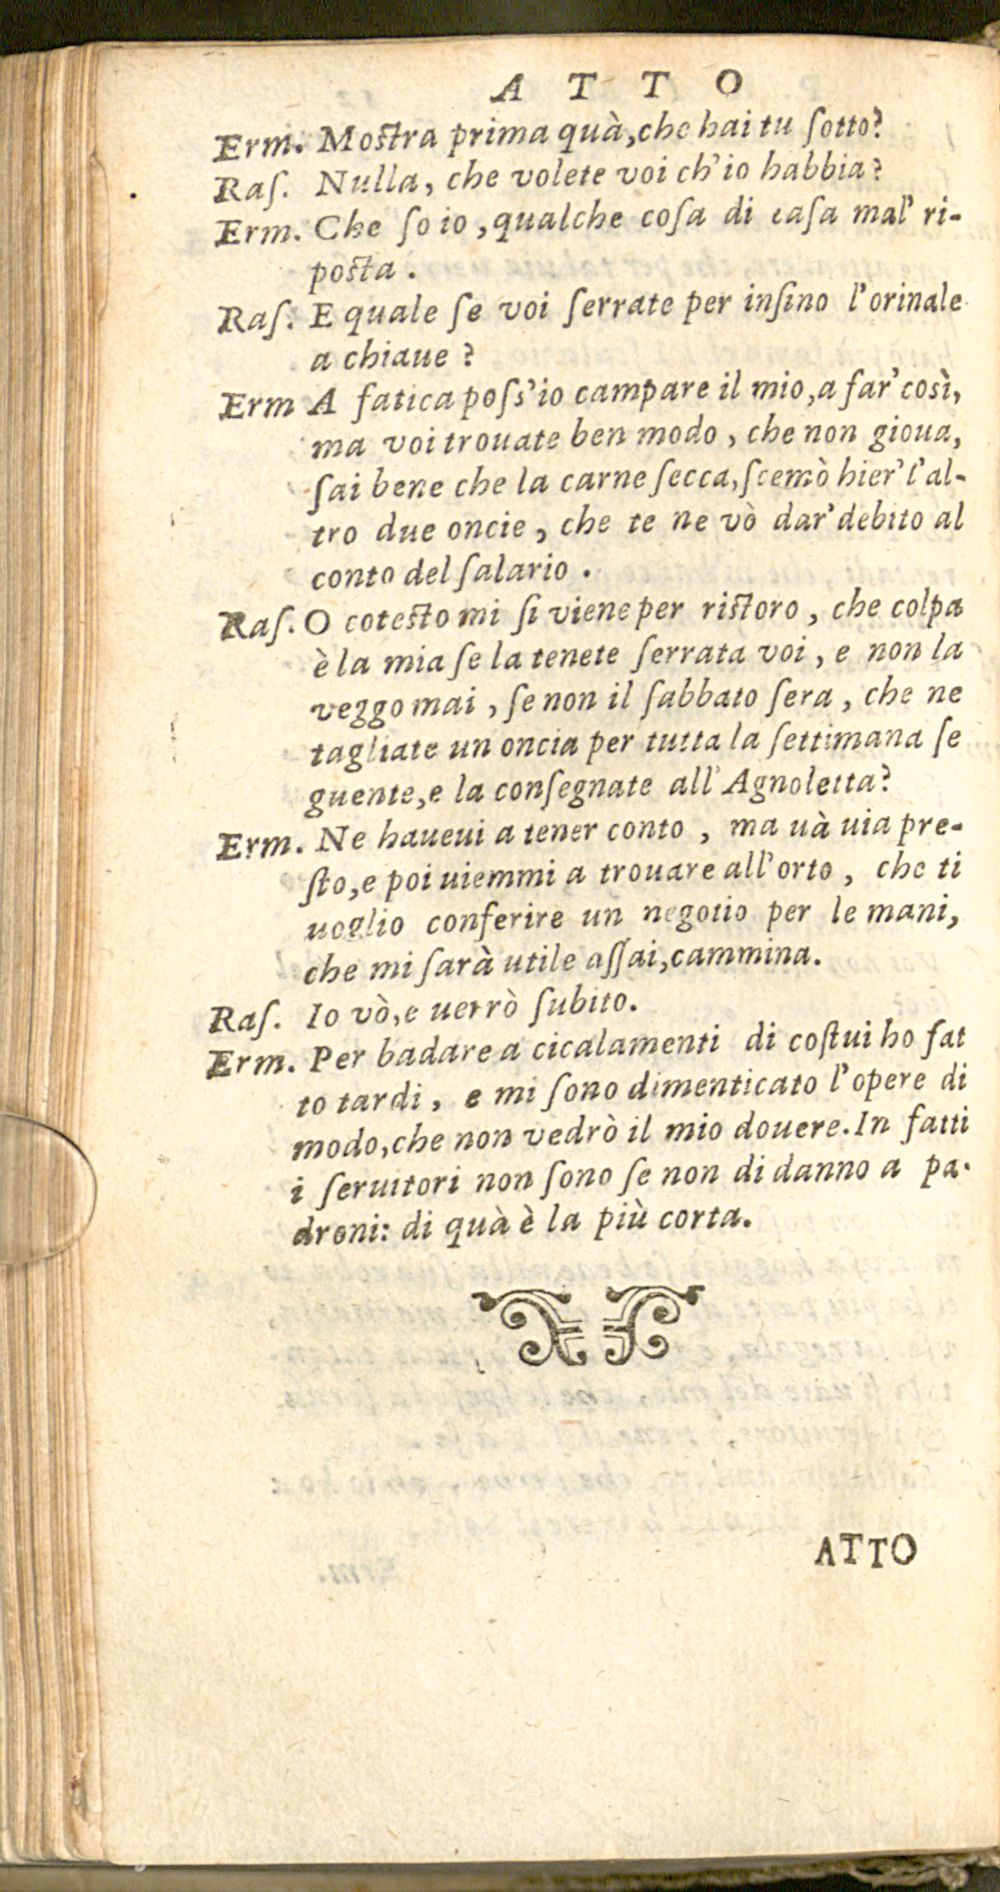 A T T O
Erm. Moſtra prima quà,che hai tu ſotto?
Raſ. Nulla, che volete voi ch'io habbia?
Erm. Che ſo io, qualche coſa di caſa mal' ri-
poſta.
Raſ. E quale ſe voi ſerrate per inſino l'orinale
a chiaue?
Erm A fatica poſs'io campare il mio,a far' così,
ma voi trouate ben modo, che non gioua,
ſai bene che la carne ſecca,ſcemò hier' l'al-
tro due oncie, che te ne vò dar' debito al
conto del ſalario.
Raſ. O coteſto mi ſi viene per riſtoro, che colpa
è la mia ſe la tenete ſerrata voi, e non la
veggo mai, ſe non il ſabbato ſera, che ne
tagliate un oncia per tutta la ſettimana ſe
guente,e la conſegnate all' Agnoletta?
Erm. Ne haueui a tener conto, ma uà uia pre-
ſto,e poi uiemmi a trouare all'orto, che ti
uoglio conferire un negotio per le mani,
che mi ſarà utile aſſai,cammina.
Raſ. Io vò,e uerrò ſubito.
Erm. Per badare a cicalamenti di coſtui ho fat
to tardi, e mi ſono dimenticato l'opere di
modo,che non vedrò il mio douere. In fatti
i ſeruitori non ſono ſe non di danno a pa-
droni: di quà è la più corta.
ATTO